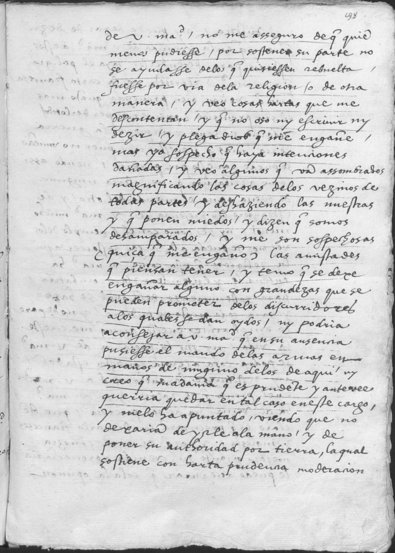 198
de v. mad, no me asseguro de q̃ quiē
menos pudiesse, por sostener su parte no
se ayudasse de lo q̃ quisiessen rebuelta
fuesse por via dela religion, o de otra
manera, y veo cosas hartas que me
descontentan, y q̃ no oso ny escriuir ny
dezir, y plega a dios q̃ me engañe,
mas yo sospecho q̃ haya intenciones
dañadas, y veo algunos q̃ vā assombrados
magnificando las cosas delos vezinos de
todas partes, y deshaziendo las nuestras
y q̃ ponen miedos, y dizen q̃ somos
desamparados, y me son sospechosas
(quiça q̃ me engaño) las amistades
q̃ piensan tener, y temo q̃ se dexe
engañar alguno con grandezas que se
pueden prometer delos discurridores
alos quales se dan oydos, ny podria
aconsejar a v mad q̃ en su ausencia
pusiesse el mando de las armas en
manos de ninguno delos de aqui, ny
creo q̃ madama q̃ es prudēte y antevee
querria quedar en tal caso en este cargo,
y me lo ha apuntado, viendo que no
dexaria de yrle a la mano, y de
poner su authoridad por tierra, la qual
sostiene con harta prudencia moderacion